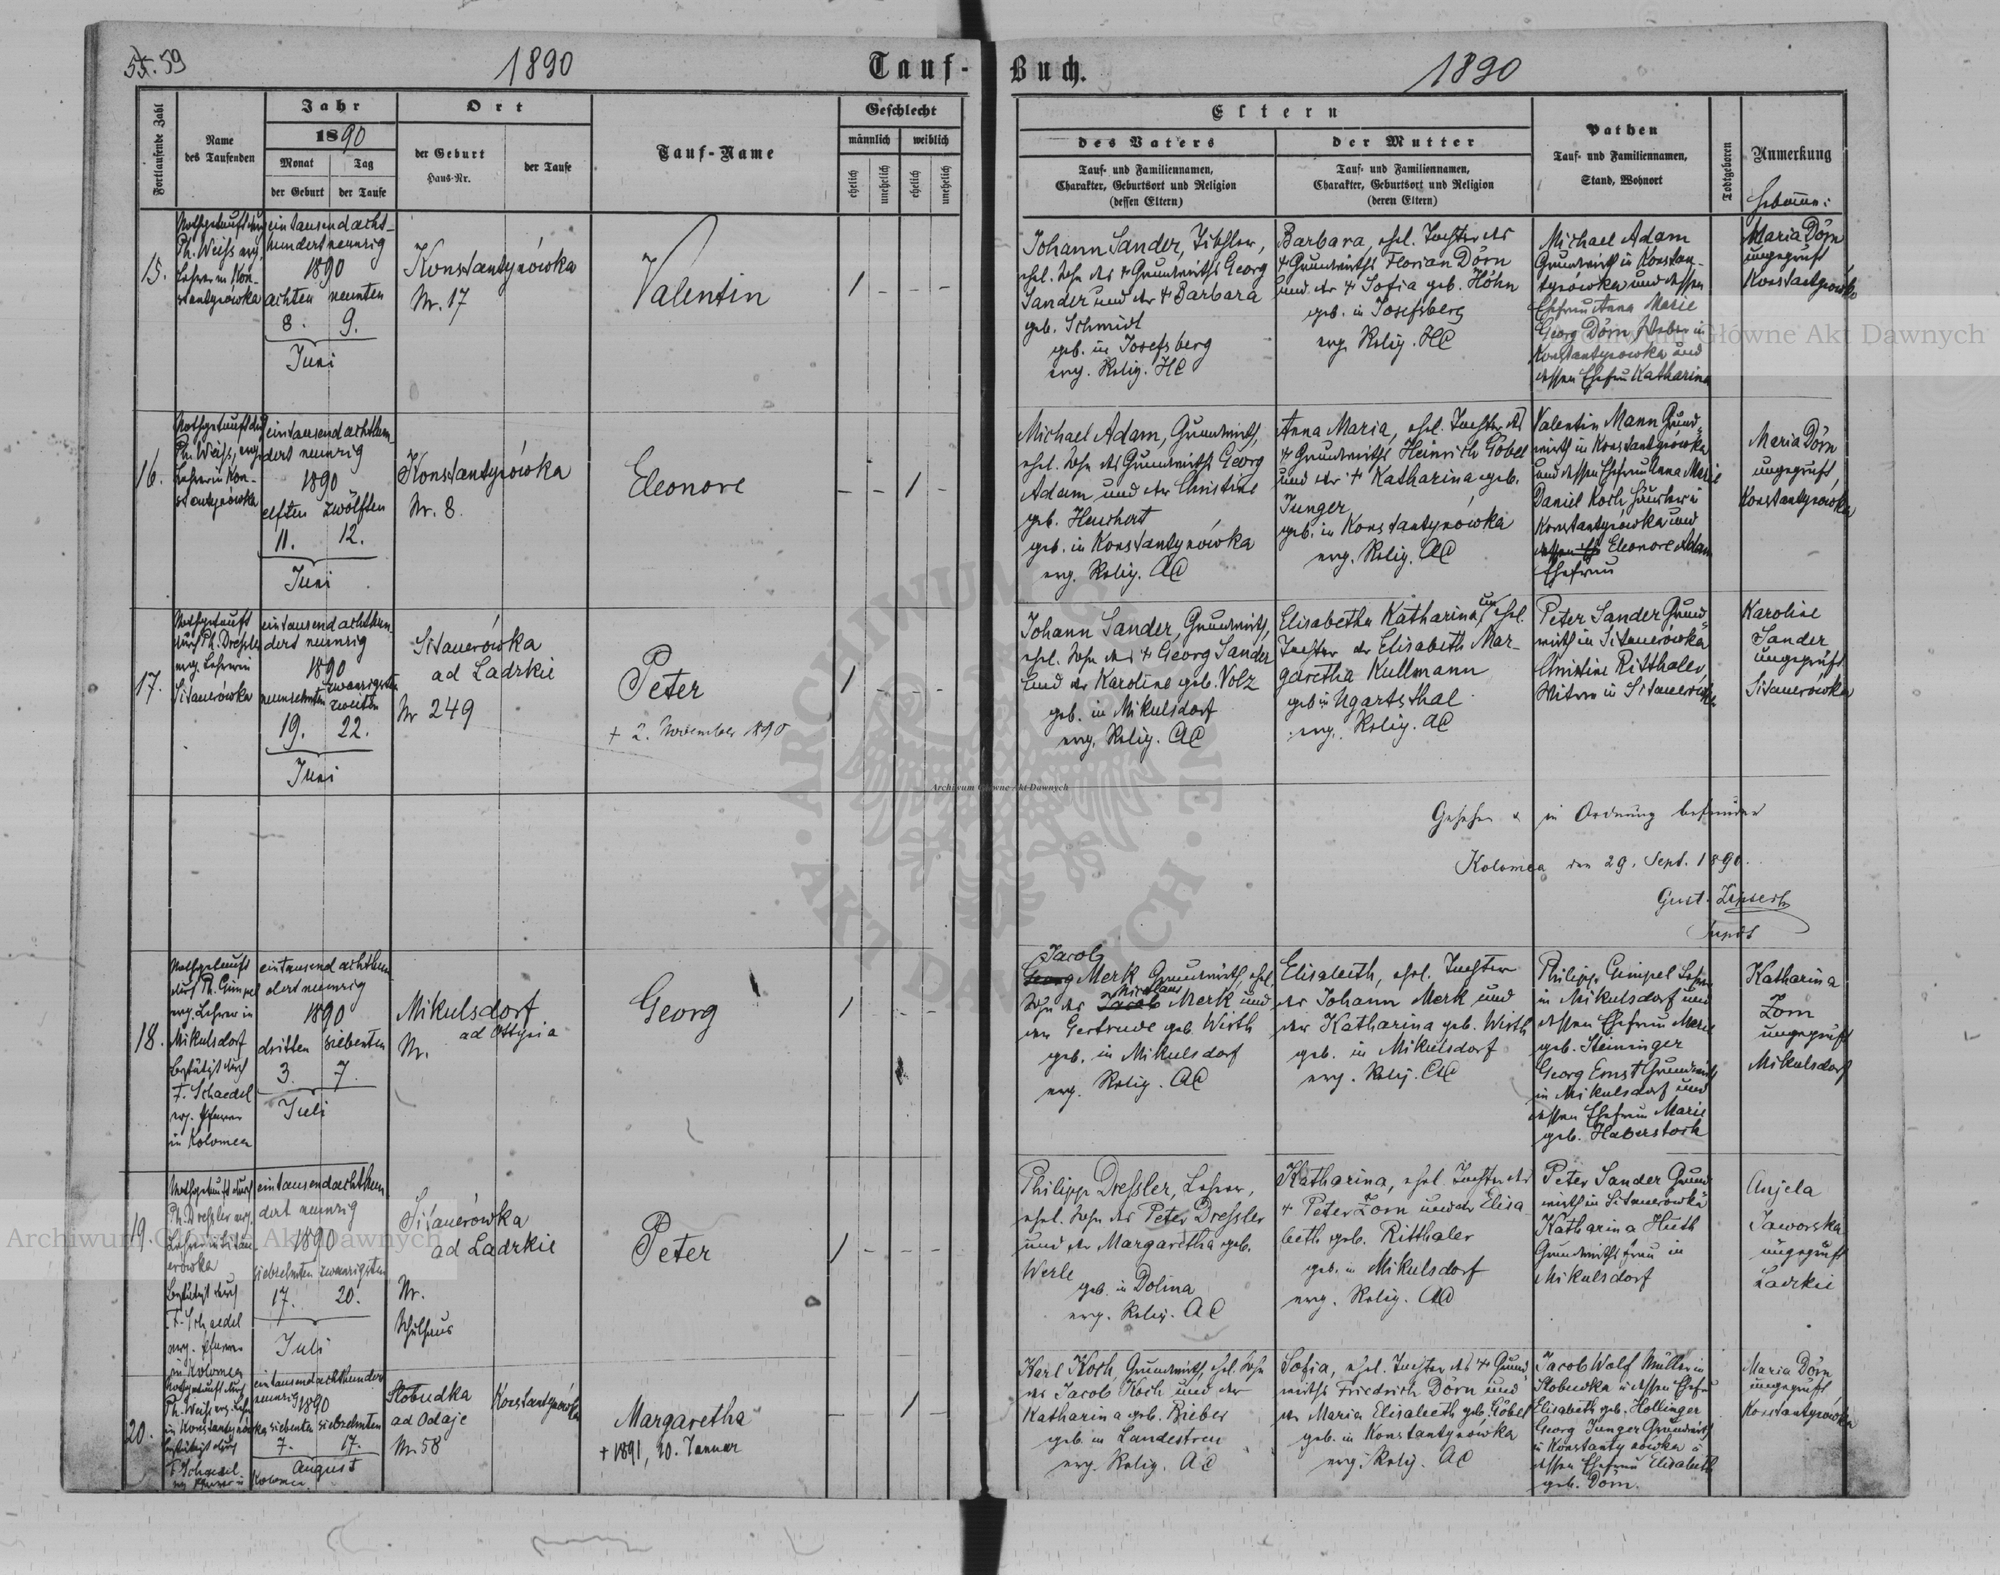 59
1890
Tauf-
Buch.
1890
Fortlaufende Zahl
Name
des Taufenden
Jahr
1890
Monat
Tag
der Geburt
der Taufe
Ort
der Geburt
Haus-Nr.
der Taufe
Tauf-Name
Geschlecht
männlich
weiblich
ehelich
unehelich
ehelich
unehelich
Eltern
des Vaters
Tauf- und Familiennamen,
Charakter, Geburtsort und Religion
(dessen Eltern)
der Mutter
Tauf- und Familiennamen,
Charakter, Geburtsort und Religion
(deren Eltern)
Pathen
Tauf- und Familiennamen,
Stand, Wohnort
Todtgeboren
Anmerkung
Hebamme:
15.
Nothgetauft durch
Ph. Weiss evg.
Lehrer in Kon-
stantynówka
eintausendacht-
hundertneunzig
1890
achten neunten
8. 9.
Juni
Konstantynówka
Nr. 17
Valentin
1 - - -
Johann Sander, Tischler,
ehel. Sohn des + Grundwirths Georg
Sander und der + Barbara
geb. Schmidt
geb. in Josefsberg
evg. Relig. HC
Barbara, ehel. Tochter des
+ Grundwirths Florian Dörn
und der + Sofia geb. Höhn
geb. in Josefsberg
evg. Relig. HC
Michael Adam
Grundwirth in Konstan-
tynówka und dessen
Ehefrau Anna Marie
Georg Dörn Weber in
Konstantynówka und
dessen Ehefrau Katharina
Maria Dörn
ungeprüft
Konstantynówka
16.
Nothgetauft durch
Ph. Weiss, evg.
Lehrer in Kon-
stantynówka
eintausendachthun-
dertneunzig
1890
elften zwölften
11. 12.
Juni
Konstantynówka
Nr. 8.
Eleonore
- - 1 -
Michael Adam, Grundwirth,
ehel. Sohn des Grundwirths Georg
Adam und der Christine
geb.
geb. in Konstantynówka
evg. Relig. AC
Anna Maria, ehel. Tochter des
+ Grundwirths Heinrich Göbel
und der + Katharina geb.
Junger
geb. in Konstantynówka
evg. Relig. AC
Valentin Mann Grund-
wirth in Konstantynówka
und dessen Ehefrau Anna Marie
Daniel Koch in
Konstantynówka und
dessen Eleonore Adam
Ehefrau
Maria Dörn
ungeprüft
Konstantynówka
17.
Nothgetauft
durch Ph. Dressler
evg. Lehrer in
Sitauerówka
eintausendachthun-
dertneunzig
1890
neunzehnten zwanzigsten
zweiten
19. 22.
Juni
Sitauerówka
ad Ladzkie
Nr 249
Peter
+ 2. November 1890
1 - - -
Johann Sander, Grundwirth,
ehel. Sohn des + Georg Sander
und der Karoline geb. Volz
geb. in Mikulsdorf
evg. Relig. AC
Elisabetha Katharina, unehel.
Tochter der Elisabeth Mar-
garetha Kullmann
geb in Ugartsthal
evg. Relig. AC
Peter Sander Grund-
wirth in Sitauerówka
Christine Ritthaler,
Witwe in Sitauerówka
Karoline
Sander
ungeprüft
Sitauerówka
Gesehen & in Ordnung befunden
Kolomea den 29. Sept. 1890.
Gust.
18.
Nothgetauft
durch Ph. Gimpel
evg. Lehrer in
Mikulsdorf
bestätigt durch
F. Schaedel
evg. Pfarrer
in Kolomea
eintausendachthun-
dertneunzig
1890
dritten siebenten
3. 7.
Juli
Mikulsdorf
ad Ottynia
Nr.
Georg
1 - - -
Jacob
Georg Merk Grundwirth, ehel.
Nicolaus
Sohn des Jacob Merk und
der Gertrude geb. Wirth
geb. in Mikulsdorf
evg. Relig. AC
Elisabeth, ehel. Tochter
des Johann Merk und
der Katharina geb. Wirth
geb. in Mikulsdorf
evg. Relig. AC
Philipp Gimpel Lehrer
in Mikulsdorf und
dessen Ehefrau Marie
geb. Steininger
Georg Ernst Grundwirth
in Mikulsdorf und
dessen Ehefrau Marie
geb. Haberstock
Katharina
Zorn
ungeprüft
Mikulsdorf
19.
Nothgetauft durch
Ph. Dressler evg.
Lehrer in Sitau-
erówka
bestätigt durch
F. Schaedel
evg. Pfarrer
in Kolomea
eintausendachthun-
dertneunzig
1890
siebzehnten zwanzigsten
17. 20.
Juli
Sitauerówka
ad Ladzkie
Nr.
Schulhaus
Peter
1 - - -
Philipp Dressler, Lehrer,
ehel. Sohn des Peter Dressler
und der Margaretha geb.
Werle
geb. in Dolina
evg. Relig. AC
Katharina, ehel. Tochter des
+ Peter Zorn und der Elisa-
beth geb. Ritthaler
geb. in Mikulsdorf
evg. Relig. AC
Peter Sander Grund-
wirth in Sitauerówka
Katharina Huth
Grundwirthsfrau in
Mikulsdorf
Anjela
Jaworska
ungeprüft
Ladzkie
20.
Nothgetauft durch
Ph. Weiss evg. Lehrer
in Konstantynówka
bestätigt durch
F. Schaedel
evg. Pfarrer in Kolomea.
eintausendachthundert
neunzig 1890
siebenten siebzehnten
7. 17.
August
Slobudka
ad Odaje
Nr. 58
Konstantynówka
Margaretha
+ 1891, 20. Januar
- 1 -
Karl Koch, Grundwirth, ehel. Sohn
des Jacob Koch und der
Katharina geb. Bieber
geb. in Landestreu
evg. Relig. AC
Sofia, ehel. Tochter des + Grund-
wirths Friedrich Dörn und
der Maria Elisabeth geb. Göbel
geb. in Konstantynówka
evg. Relig. AC
Jacob Wolf Müller in
Slobudka u dessen Ehefrau
Elisabeth geb. Hollinger
Georg Junger Grundwirth
in Konstantynówka u
dessen Ehefrau Elisabeth
geb. Dörn.
Maria Dörn
ungeprüft
Konstantynówka
Archiwum Główne Akt Dawnych
Archiwum Główne Akt Dawnych
Archiwum Główne Akt Dawnych
ARCHIWUM GŁÓWNE AKT DAWNYCH